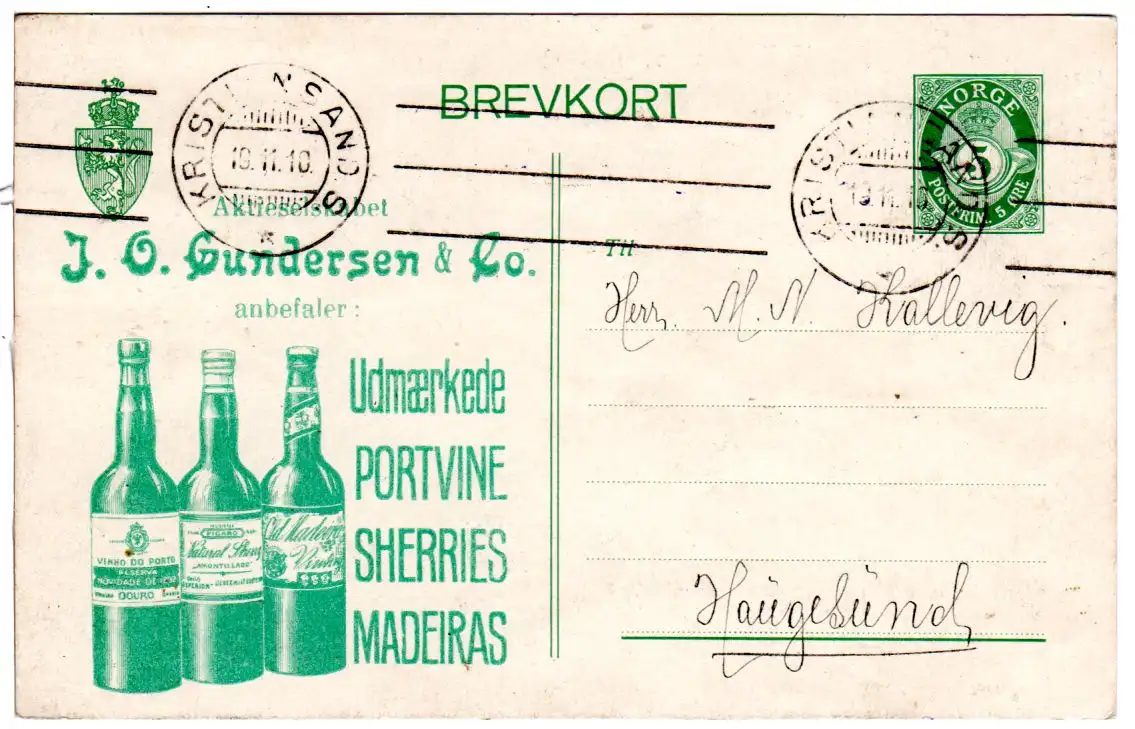 BREVKORT
KRISTIANSAND S
19.11.10.
KRISTIANSAND S
19.11.10
NORGE
5
POSTFRIM. 5 ØRE
Aktieselskabet
J. O. Gundersen & Co.
anbefaler:
Udmærkede
PORTVINE
SHERRIES
MADEIRAS
VINHO DO PORTO
RESERVA
NOVIDADE DE
DOURO
FIGARO
Natural Sherry
AMONTILLADO
Old Madeira
Til
Herr. M. N. Kallevig.
Haugesund